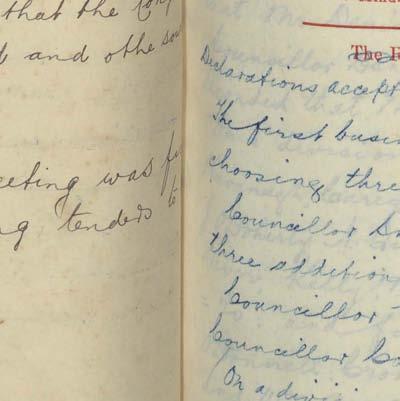 that the
and othe
eeting was
ng tenders to
The
Declarations accept
The first busin
choosing thre
Councillor
three addition
Councillor
Councillor
On a divisi